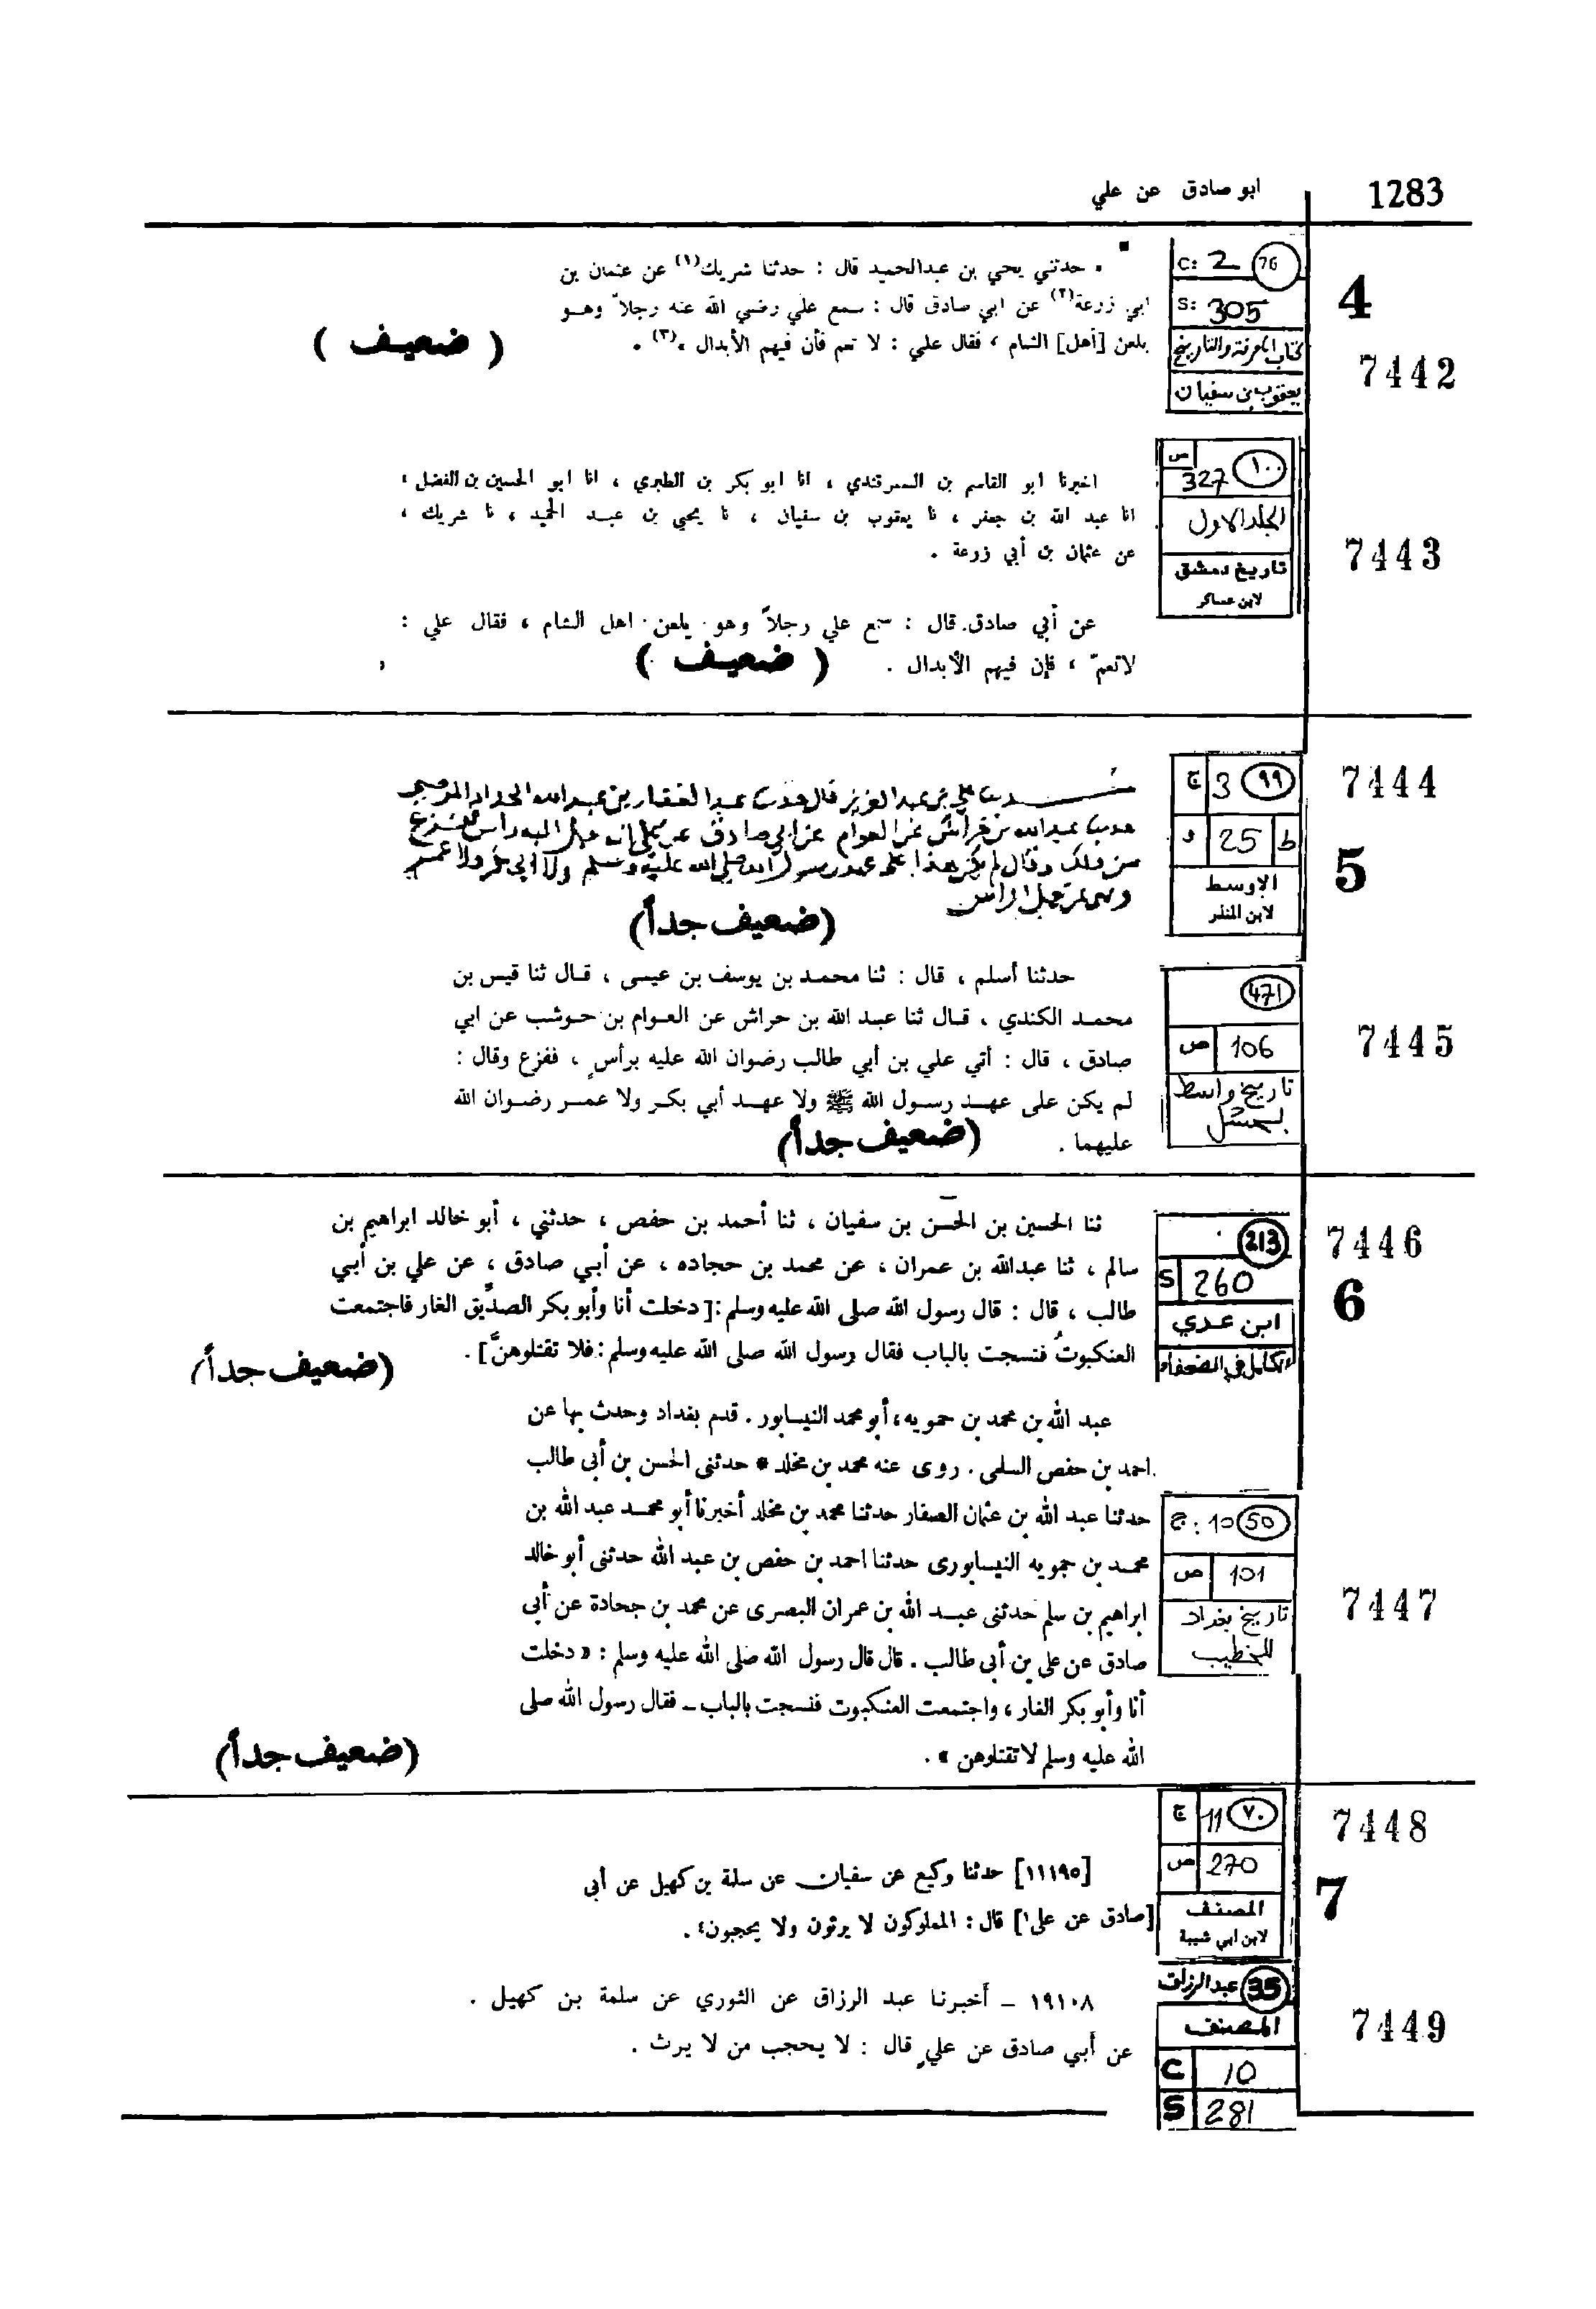 1283
ابو صادق عن علي
4
7442
C: 2 76
S: 305
كتاب المعرفة والتاريخ
يعقوب بن سفيان
• حدثني يحي بن عبدالحميد قال : حدثنا شريك(١) عن عثمان بن
ابي زرعة(٢) عن ابي صادق قال : سمع علي رضي الله عنه رجلاً وهو
يلعن [أهل] الشام ، فقال علي : لا تعم فأن فيهم الأبدال ،(٣) .
( ضعيف )
7443
ص 327 ١٠٠
المجلد الاول
تاريخ دمشق
لابن عساكر
اخبرنا ابو القاسم بن السمرقندي ، انا ابو بكر بن الطبري ، انا ابو الحسين بن الفضل ،
انا عبد الله بن جعفر ، نا يعقوب بن سفيان ، نا يحيى بن عبد الحميد ، نا شريك ،
عن عثمان بن أبي زرعة .
عن أبي صادق قال : سمع علي رجلاً وهو يلعن اهل الشام ، فقال علي :
لاتعمّ ، فإن فيهم الأبدال .
( ضعيف )
7444
5
ج 3 ٩٩
و 25 ط
الاوسط
لابن المنذر
حدثنا علي بن عبد العزيز قال حدثنا عبد الغفار بن عبد الله الحداد
حدثنا عبد الله بن خراش عن العوام عن ابي صادق عن علي انه حمل اليه رأس ففزع
من ذلك وقال لم يكن هذا على عهد رسول الله صلى الله عليه وسلم ولا ابي بكر ولا عمر
(ضعيف جداً)
7445
471
ص 106
تاريخ واسط
بحشل
حدثنا أسلم ، قال : ثنا محمد بن يوسف بن عيسى ، قال ثنا قيس بن
محمد الكندي ، قال ثنا عبد الله بن حراش عن العوام بن حوشب عن ابي
صادق ، قال : أتي علي بن أبي طالب رضوان الله عليه برأس ، ففزع وقال :
لم يكن على عهد رسول الله ﷺ ولا عهد أبي بكر ولا عمر رضوان الله
عليهما .
(ضعيف جداً)
7446
6
213
S 260
ابن عدي
الكامل في الضعفاء
ثنا الحسين بن الحسن بن سفيان ، ثنا أحمد بن حفص ، حدثني ، أبو خالد ابراهيم بن
سالم ، ثنا عبدالله بن عمران ، عن محمد بن حجاده ، عن أبي صادق ، عن علي بن أبي
طالب ، قال : قال رسول الله صلى الله عليه وسلم :[دخلت أنا وأبو بكر الصدّيق الغار فاجتمعت
العنكبوتُ فنسجت بالباب فقال رسول الله صلى الله عليه وسلم : فلا تقتلوهنَّ] .
(ضعيف جداً)
عبد الله بن محمد بن حمويه ، أبو محمد النيسابور . قدم بغداد وحدث بها عن
احمد بن حفص السلمى . روى عنه محمد بن مخلد * حدثنى الحسن بن أبى طالب
حدثنا عبد الله بن عثمان الصفار حدثنا محمد بن مخلد أخبرنا أبو محمد عبد الله بن
محمد بن حمويه النيسابورى حدثنا احمد بن حفص بن عبد الله حدثنى أبو خالد
ابراهيم بن سلم حدثنى عبد الله بن عمران البصرى عن محمد بن جحادة عن أبى
صادق عن على بن أبى طالب . قال قال رسول الله صلى الله عليه وسلم : « دخلت
أنا وأبو بكر الغار ، واجتمعت العنكبوت فنسجت بالباب ــ فقال رسول الله صلى
الله عليه وسلم لا تقتلوهن » .
(ضعيف جداً)
7447
ج : 10 50
ص 101
تاريخ بغداد
للخطيب
7448
7
ج 11 ٧٠
ص 270
المصنف
لابن ابي شيبة
[١١١٩٥] حدثنا وكيع عن سفيان عن سلمة بن كهيل عن أبى
[صادق عن على١] قال : المملوكون لا يرثون ولا يحجبون٤ .
7449
عبدالرزاق 35
المصنف
C 10
S 281
١٩١٠٨ ــ أخبرنا عبد الرزاق عن الثوري عن سلمة بن كهيل .
عن أبي صادق عن علي قال : لا يحجب من لا يرث .